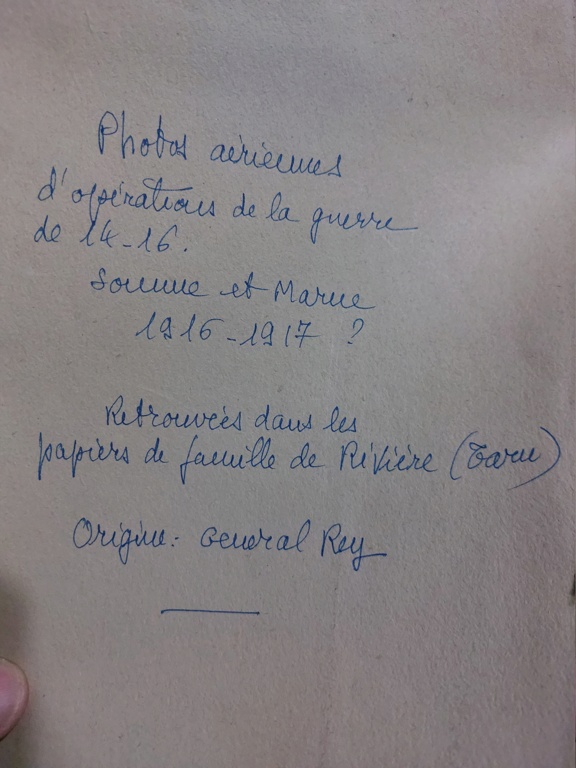 Photos aériennes
d'opérations de la guerre
de 14-16.
Somme et Marne
1916-1917 ?
Retrouvées dans les
papiers de famille de Rivière (Tarn)
Origine: General Rey